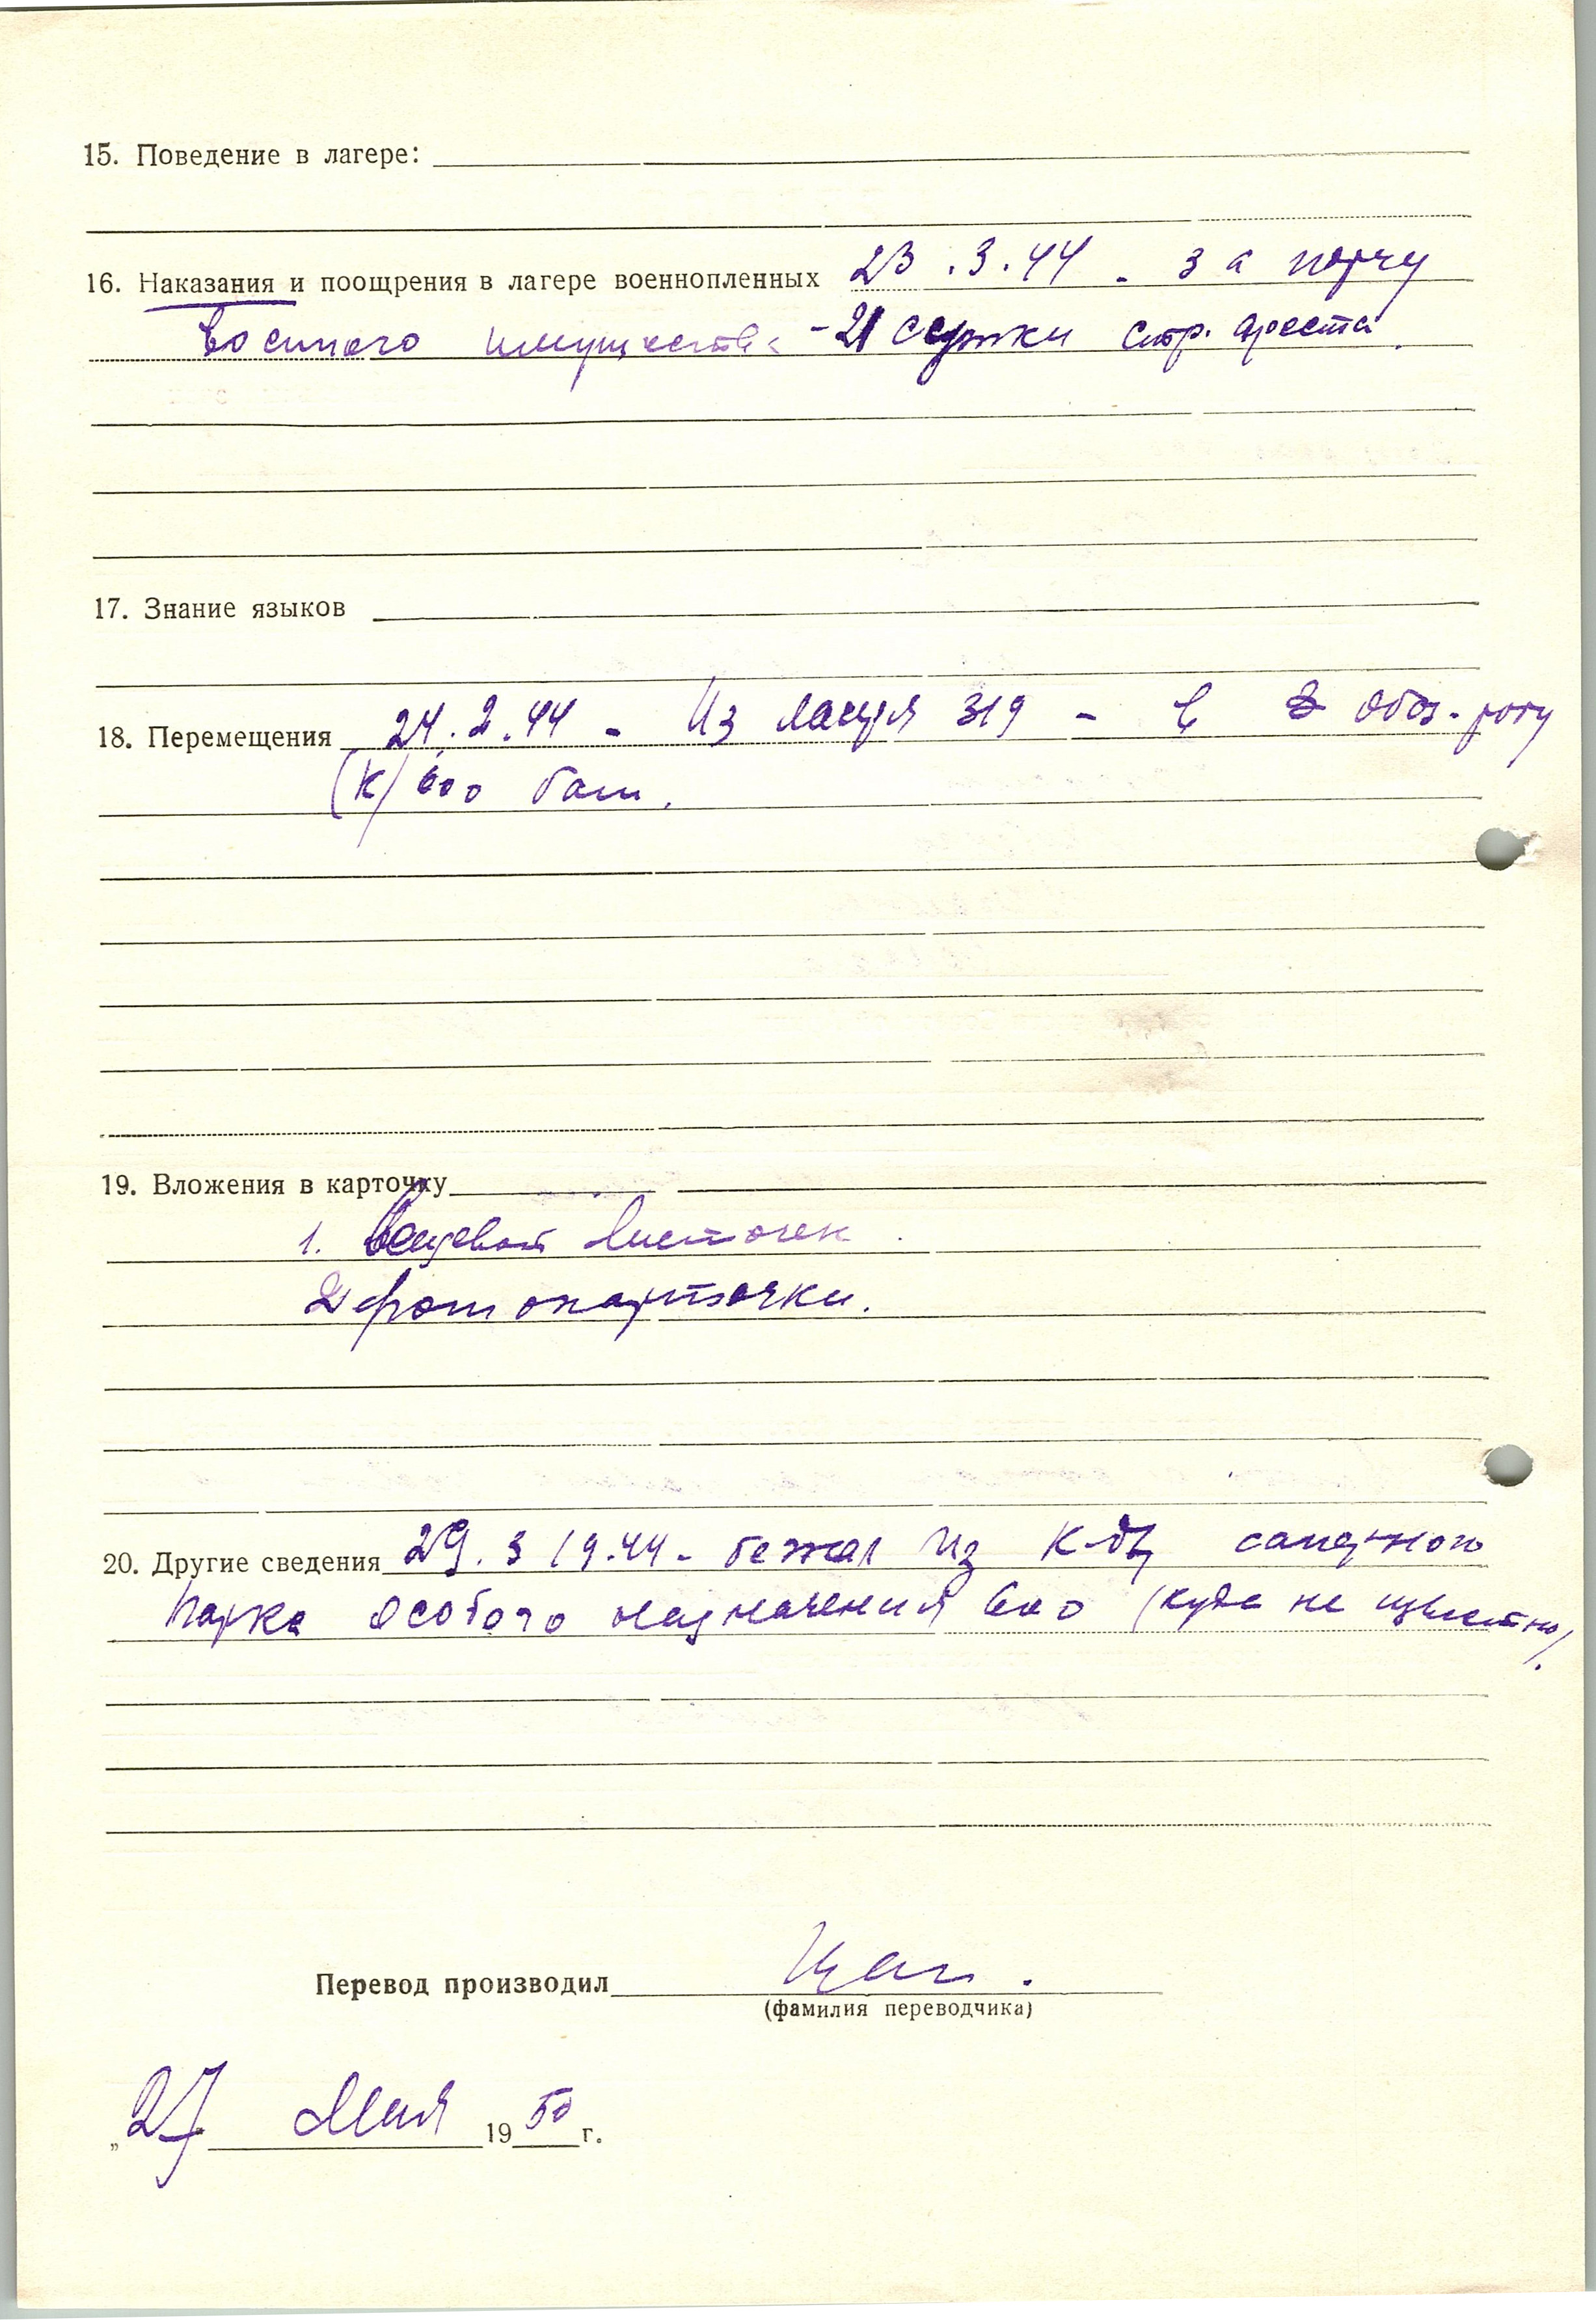 15. Поведение в лагере:
16. Наказания и поощрения в лагере военнопленных 23.3.44 - за порчу
военного имущества - 21 сутки стр. ареста.
17. Знание языков
18. Перемещения 24.2.44 - Из лагеря 319 - в обоз. роту
(К) 600 бат.
19. Вложения в карточку
1. Вещевой листочек
2 фотокарточки.
20. Другие сведения 29.3 19.44 - бежал из к-ды саперного
парка особого назначения (куда не известно).
Перевод производил
(фамилия переводчика)
„27 Мая 1950 г.